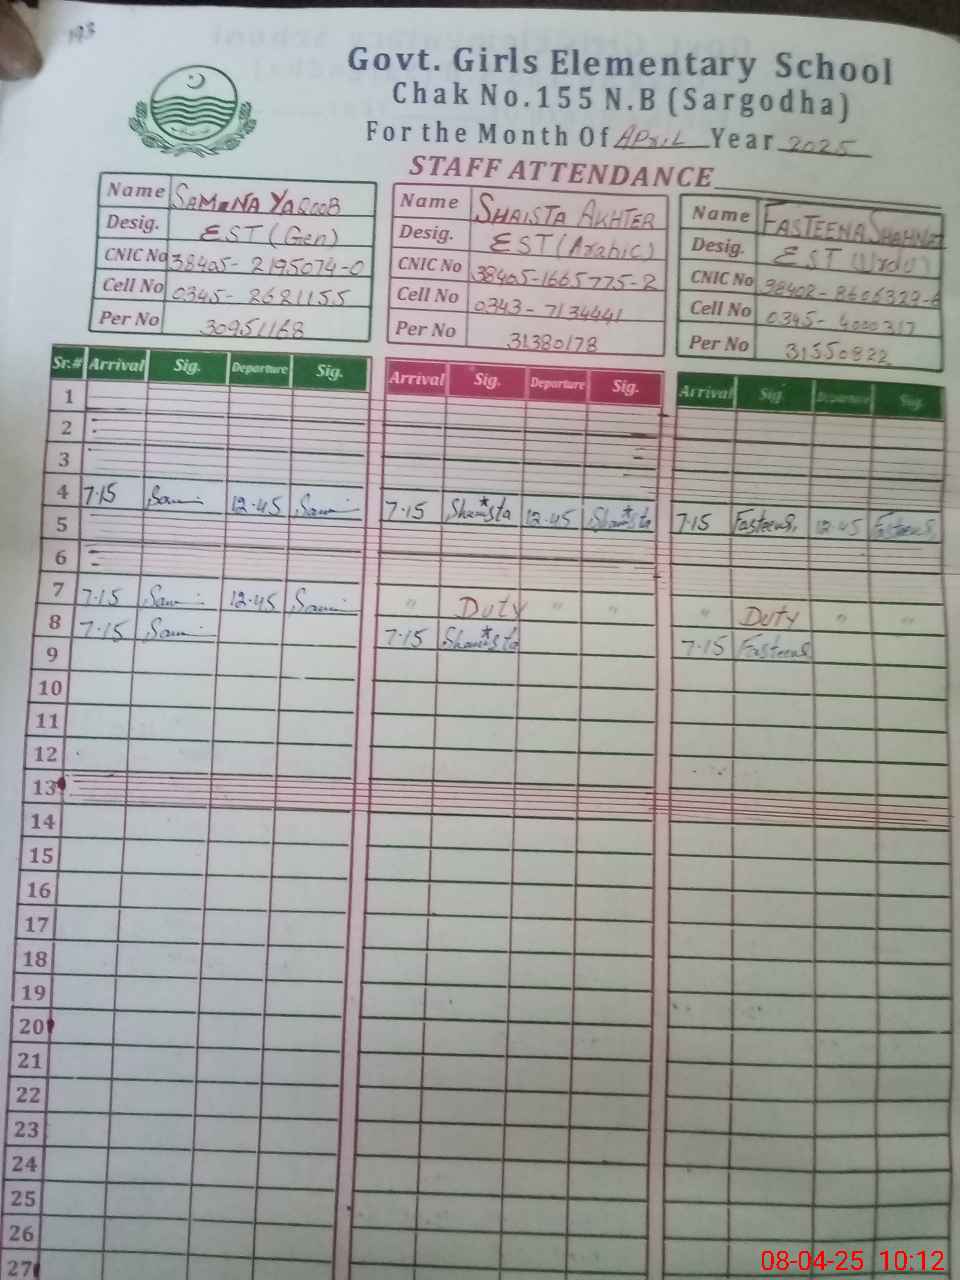 193
Govt. Girls Elementary School
Chak No.155 N.B (Sargodha)
For the Month Of April Year 2025
STAFF ATTENDANCE
Name SAMINA YAQOOB
Desig. EST (Gen)
CNIC No 38405-2195074-0
Cell No 0345-2621155
Per No 30951168
Name SHAISTA AKHTER
Desig. EST (Arabic)
CNIC No 38405-1665775-2
Cell No 0343-7134441
Per No 31380178
Name FASTEENA
Desig. EST (Urdu)
CNIC No 38402-8606329-6
Cell No 0345-4000317
Per No 31350822
Sr.# Arrival Sig. Departure Sig. Arrival Sig. Departure Sig. Arrival Sig. Departure Sig.
1
2
3
4 7.15 12.45 7.15 Shamsta 12.45 Shamsta 7.15 Fasteena 12.45 Fasteena
5
6
7 7.15 12.45 " Duty " " " Duty " "
8 7.15 7.15 Shamsta 7.15 Fasteena
9
10
11
12
13
14
15
16
17
18
19
20
21
22
23
24
25
26
27
08-04-25 10:12